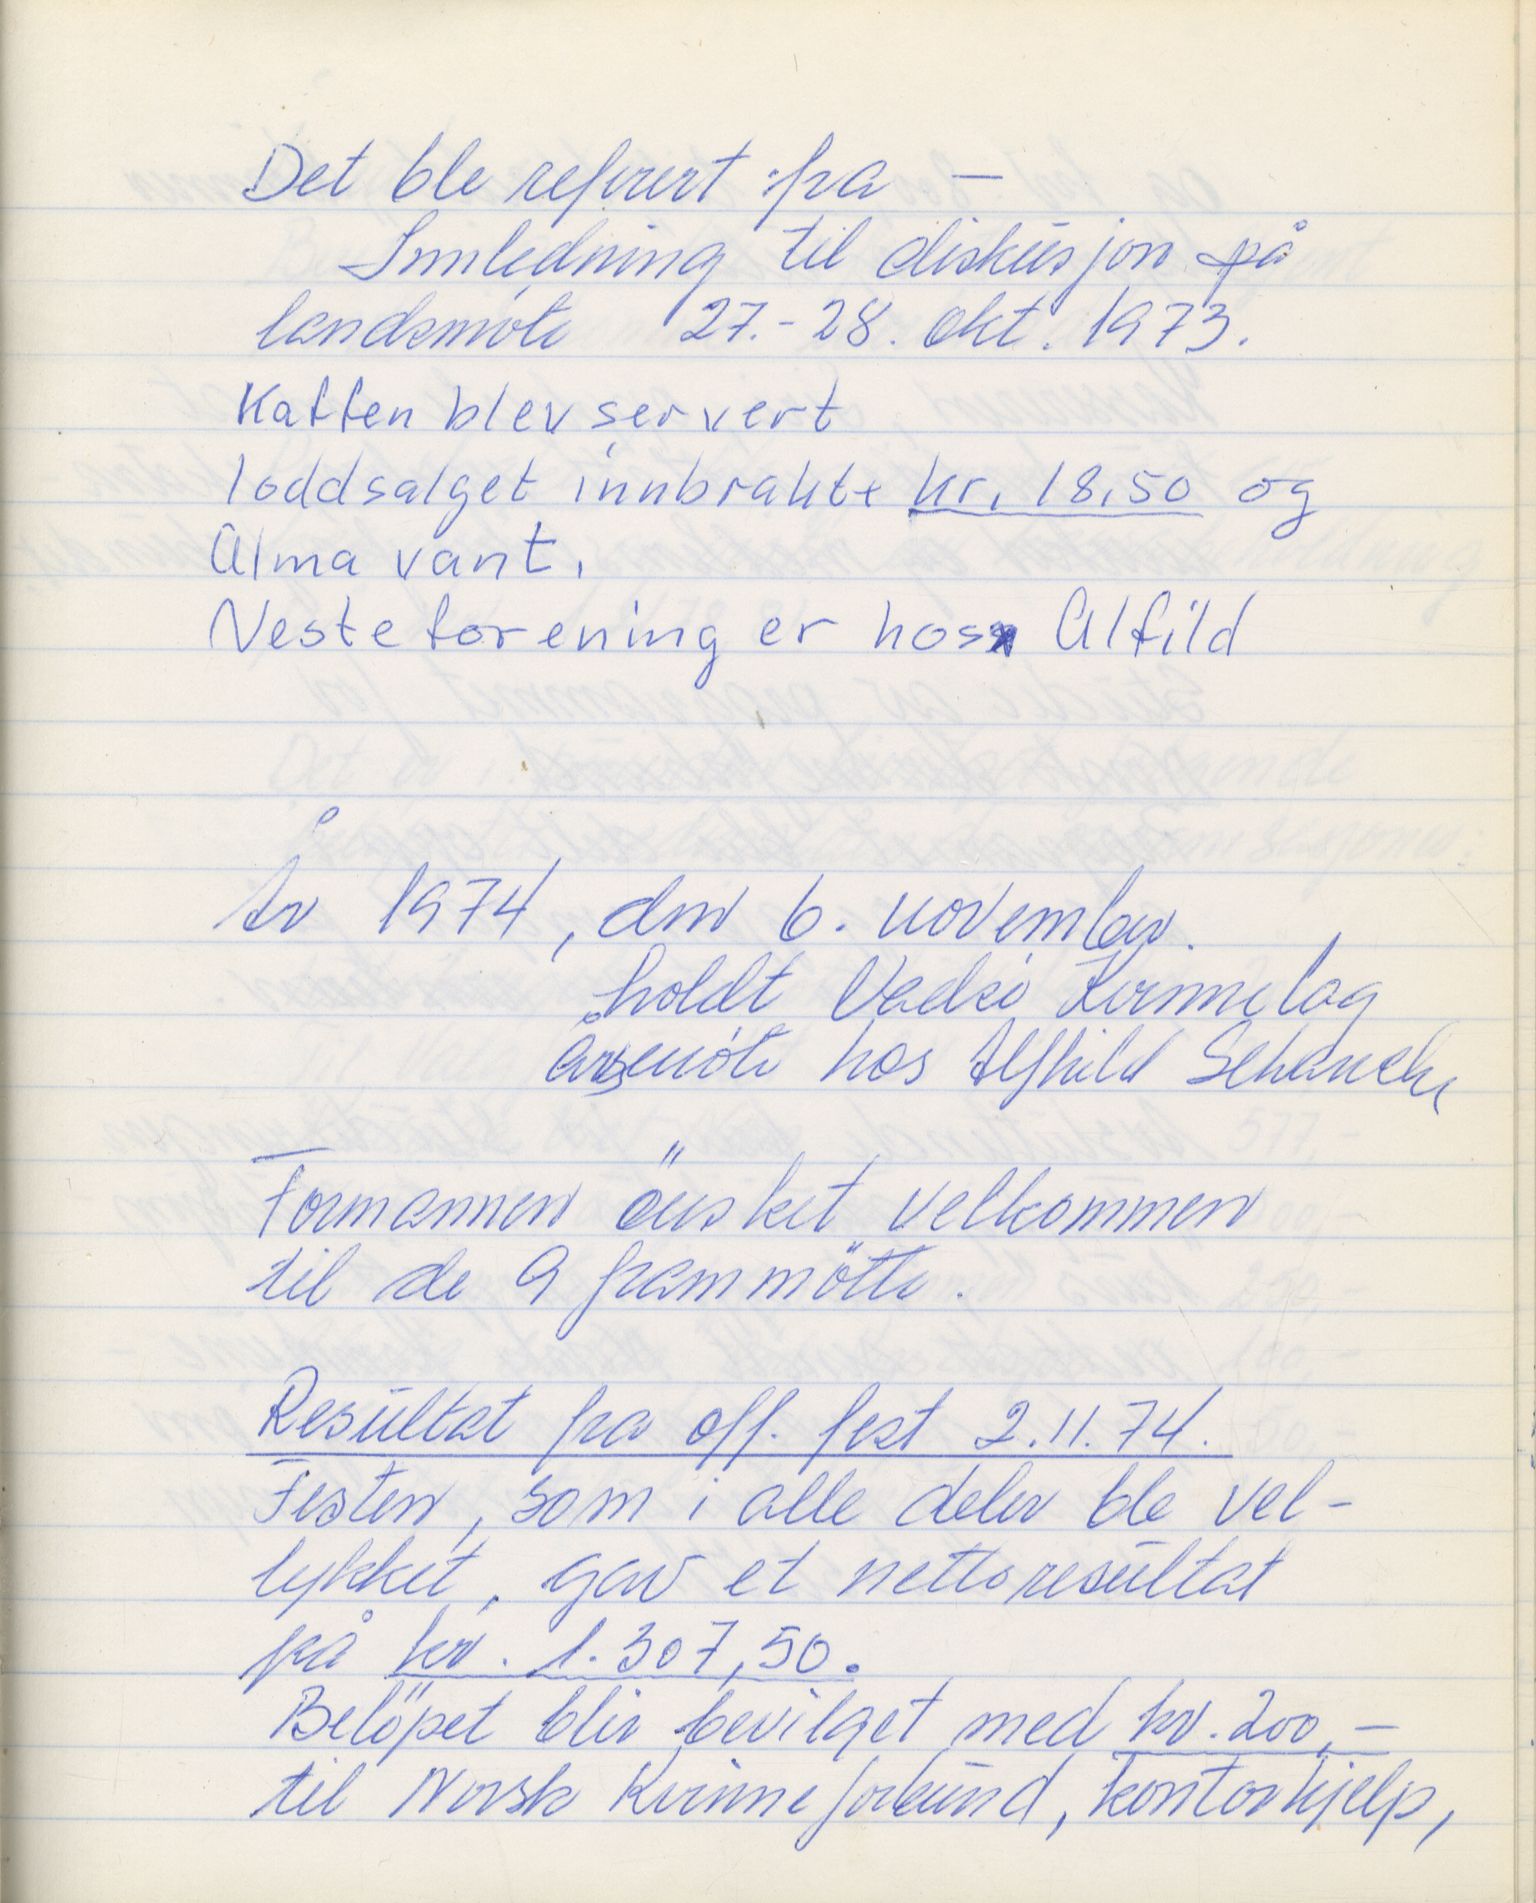 Det ble referert fra —
Innledning til diskusjon på
landsmöte 27.-28. okt. 1973.
Kaffen blev servert
loddsalget innbrakte kr. 18,50 og
Alma vant.
Neste forening er hos Alfild
År 1974, den 6. november.
holdt Vadsö Kvinnelag
årsmöte hos Alfhild Schanche
Formannen önsket velkommen
til de 9 frammötte.
Resultat fra off. fest 2.11.74.
Festen, som i alle deler ble vel-
lykket, gav et nettoresultat
på kr. 1.307,50.
Belöpet blir bevilget med kr. 200,—
til Norsk Kvinneforbund, kontorhjelp,